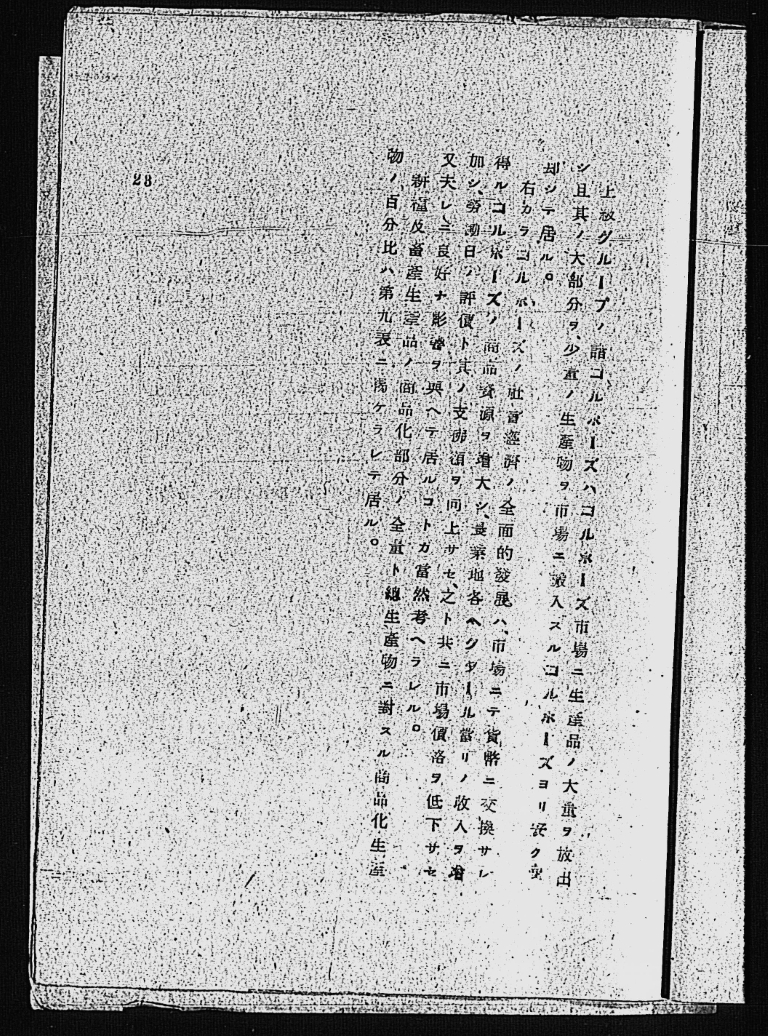 上級グループノ諸コルホーズハコルホーズ市場ニ生産品ノ大量ヲ放出
シ且其ノ大部分ヲ、少量ノ生産物ヲ市場ニ搬入スルコルホーズヨリ安ク賣
却シテ居ル。
右カラコルホーズノ社會經濟ノ全面的發展ハ、市場ニテ貨幣ニ交換サレ
得ルコルホーズノ商品資源ヲ增大シ、農業地各ヘクタール當リノ收入ヲ增
加シ、勞働日ノ評價ト其ノ支拂額ヲ向上サセ、之ト共ニ市場價格ヲ低下サセ
又夫レニ良好ナ影響ヲ與ヘテ居ルコトガ當然考ヘラレル。
耕種及畜產生產品ノ商品化部分ノ全量ト總生產物ニ對スル商品化生產
物ノ百分比ハ第九表ニ揭ゲラレテ居ル。
28